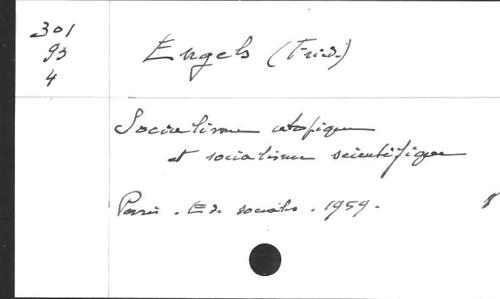 301
93
4
Engels (Fried.)
Socialisme utopique
et socialisme scientifique
Paris. Ed. sociales. 1959.